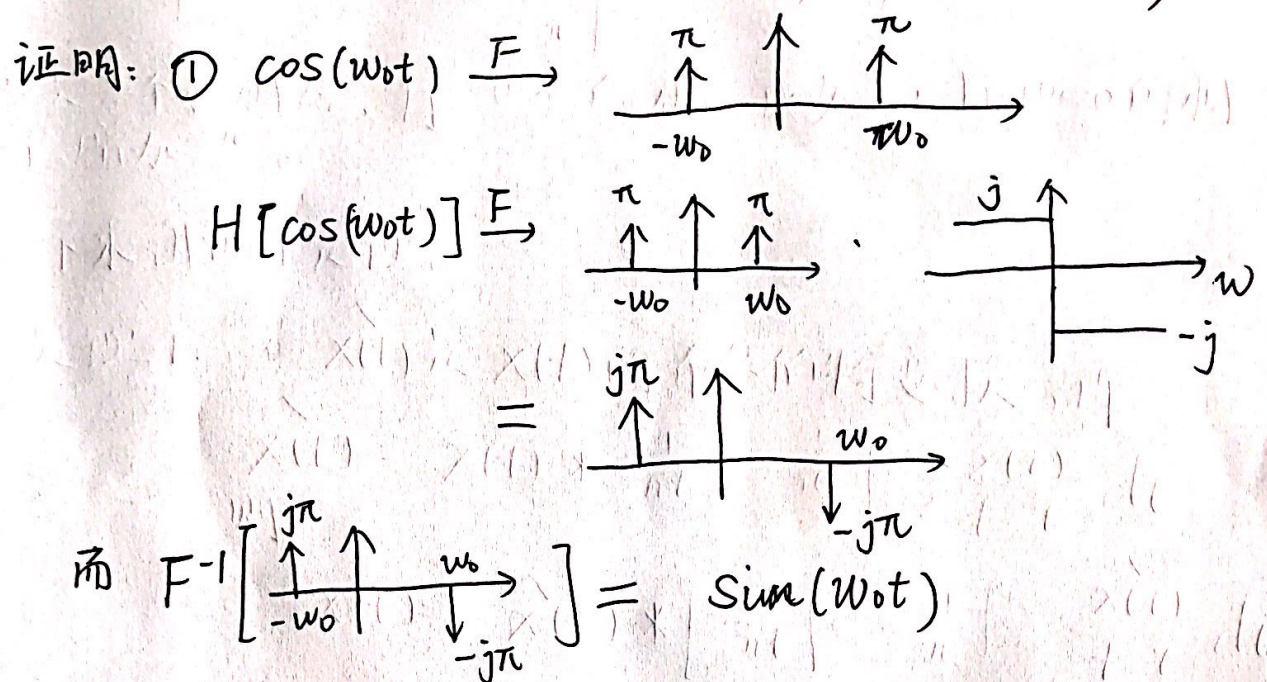 证明: ① cos(w₀t) F→ π π
-w₀ πw₀
H[cos(w₀t)] F→ π π · j
-w₀ w₀ w
-j
= jπ w₀
-jπ
而 F⁻¹[ jπ w₀ ] = Sin(w₀t)
-w₀ -jπ